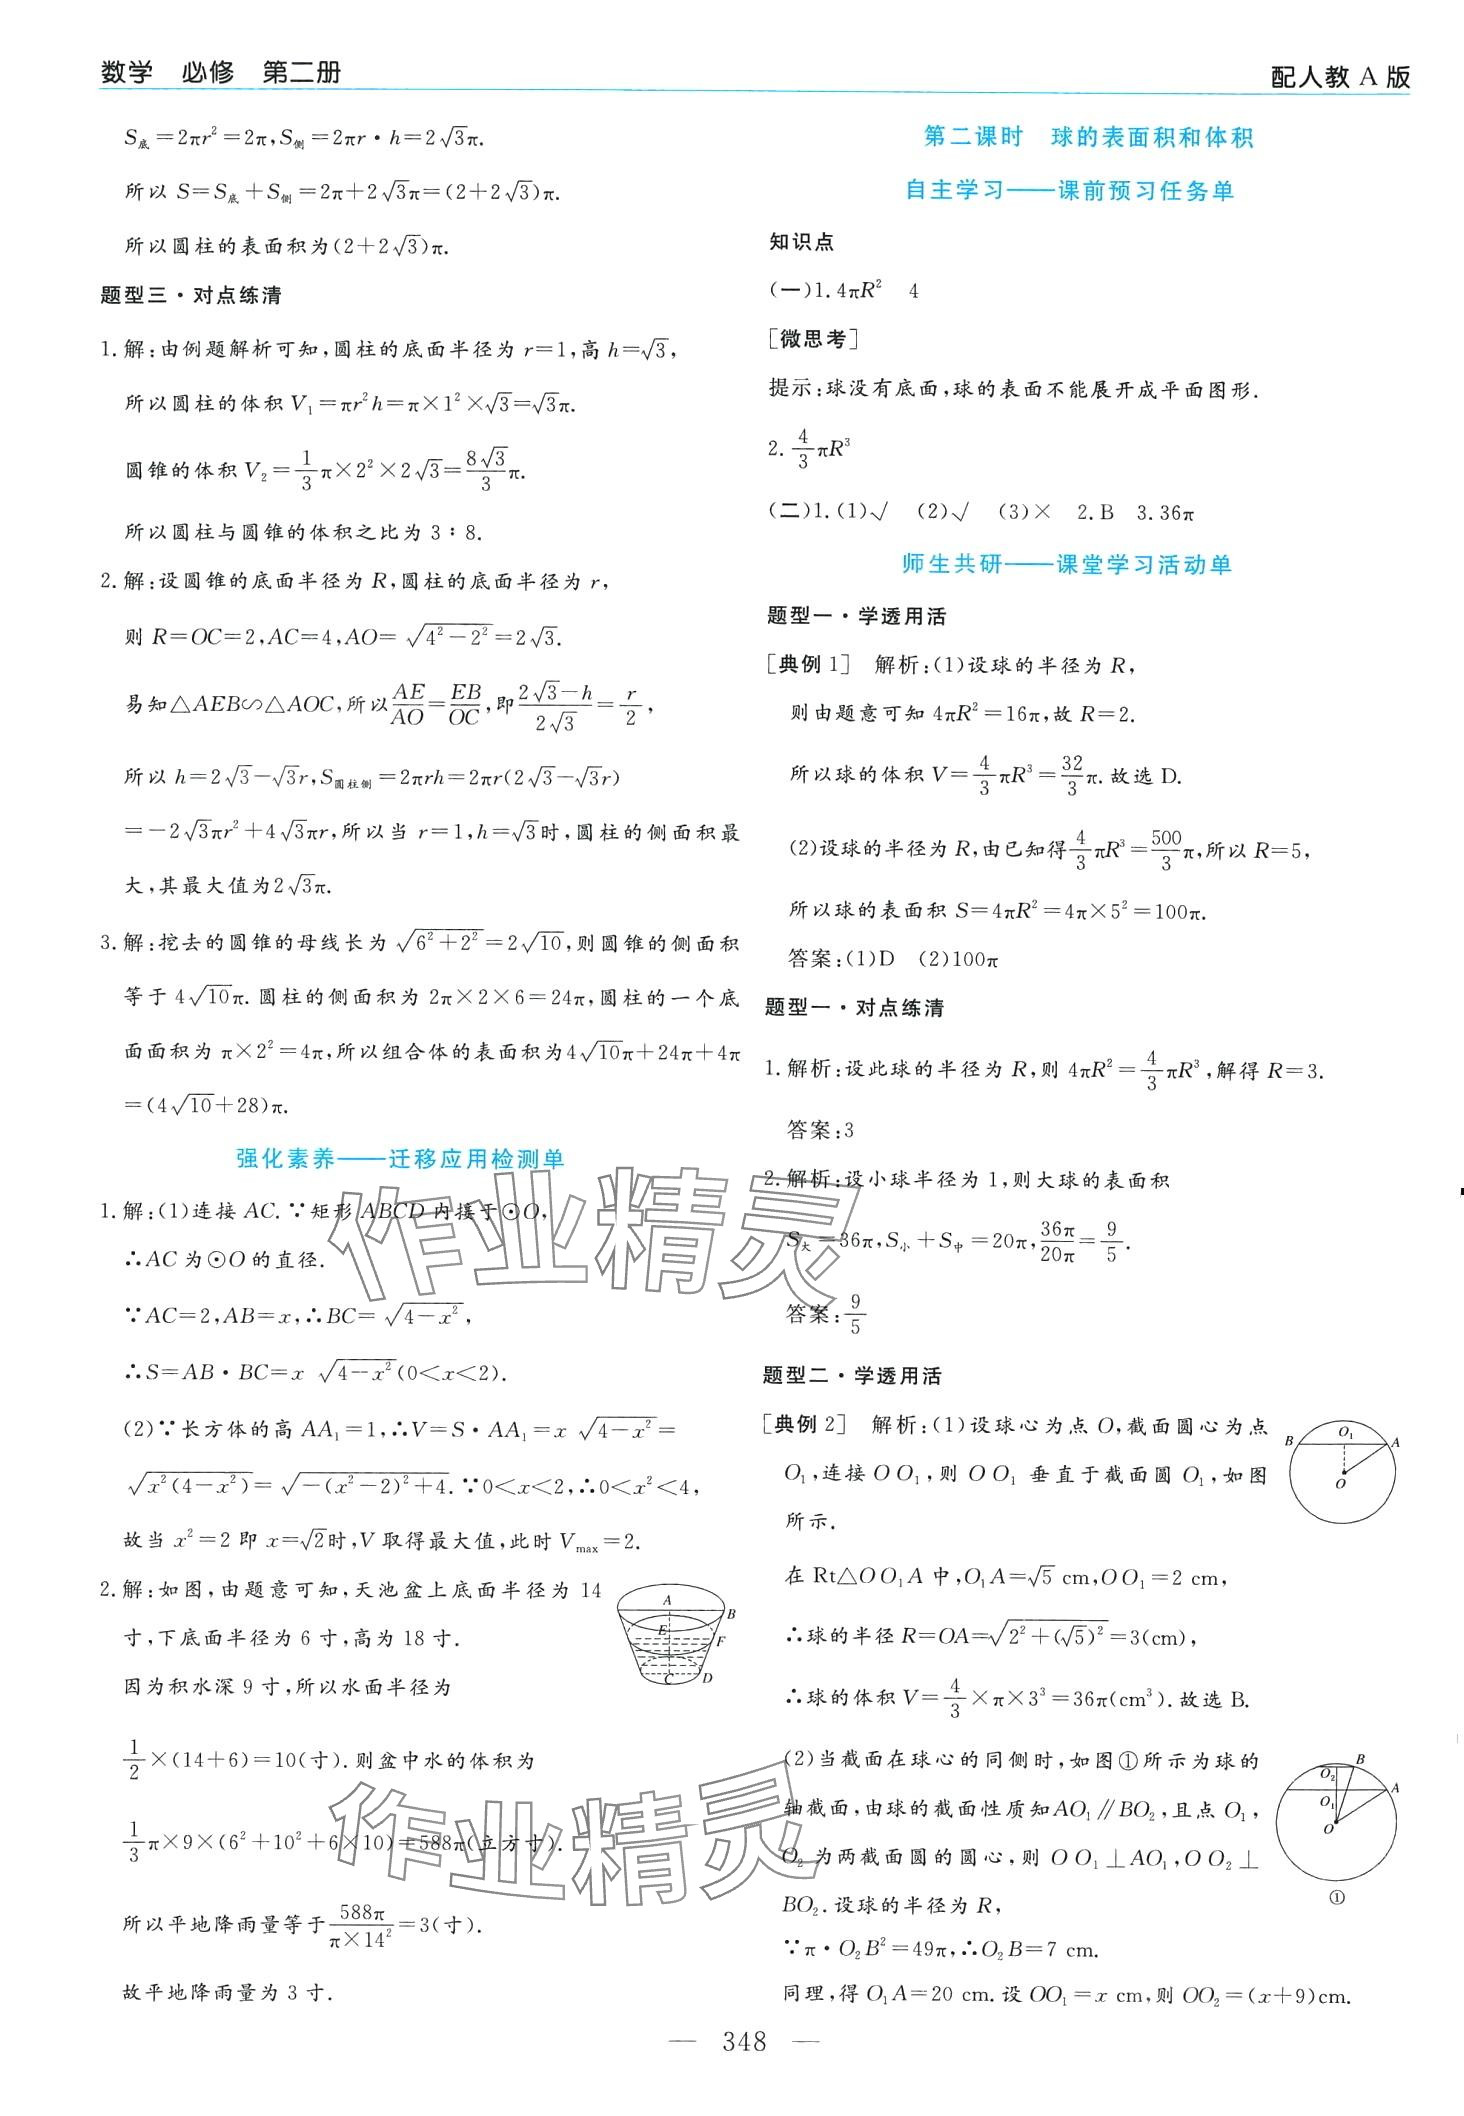 数学 必修 第二册
配人教 A 版
S底=2πr²=2π,S侧=2πr·h=2√3π.
所以 S=S底+S侧=2π+2√3π=(2+2√3)π.
所以圆柱的表面积为(2+2√3)π.
题型三·对点练清
1.解:由例题解析可知,圆柱的底面半径为 r=1,高 h=√3,
所以圆柱的体积 V₁=πr²h=π×1²×√3=√3π.
圆锥的体积 V₂=1/3π×2²×2√3=8√3/3π.
所以圆柱与圆锥的体积之比为 3∶8.
2.解:设圆锥的底面半径为 R,圆柱的底面半径为 r,
则 R=OC=2,AC=4,AO=√(4²-2²)=2√3.
易知△AEB∽△AOC,所以AE/AO=EB/OC,即(2√3-h)/2√3=r/2,
所以 h=2√3-√3r,S圆柱侧=2πrh=2πr(2√3-√3r)
=-2√3πr²+4√3πr,所以当 r=1,h=√3时,圆柱的侧面积最
大,其最大值为2√3π.
3.解:挖去的圆锥的母线长为√(6²+2²)=2√10,则圆锥的侧面积
等于 4√10π.圆柱的侧面积为 2π×2×6=24π,圆柱的一个底
面面积为 π×2²=4π,所以组合体的表面积为4√10π+24π+4π
=(4√10+28)π.
强化素养——迁移应用检测单
1.解:(1)连接 AC.∵矩形 ABCD 内接于⊙O,
∴AC 为⊙O 的直径.
∵AC=2,AB=x,∴BC=√(4-x²),
∴S=AB·BC=x √(4-x²)(0<x<2).
(2)∵长方体的高 AA₁=1,∴V=S·AA₁=x √(4-x²)=
√(x²(4-x²))=√(-(x²-2)²+4).∵0<x<2,∴0<x²<4,
故当 x²=2 即 x=√2时,V 取得最大值,此时 Vmax=2.
2.解:如图,由题意可知,天池盆上底面半径为 14
寸,下底面半径为 6 寸,高为 18 寸.
因为积水深 9 寸,所以水面半径为
1/2×(14+6)=10(寸).则盆中水的体积为
1/3π×9×(6²+10²+6×10)=588π(立方寸).
所以平地降雨量等于588π/(π×14²)=3(寸).
故平地降雨量为 3 寸.
A
B
E
F
C
D
第二课时 球的表面积和体积
自主学习——课前预习任务单
知识点
(一)1.4πR² 4
[微思考]
提示:球没有底面,球的表面不能展开成平面图形.
2.4/3πR³
(二)1.(1)√ (2)√ (3)× 2.B 3.36π
师生共研——课堂学习活动单
题型一·学透用活
[典例 1] 解析:(1)设球的半径为 R,
则由题意可知 4πR²=16π,故 R=2.
所以球的体积 V=4/3πR³=32/3π.故选 D.
(2)设球的半径为 R,由已知得4/3πR³=500/3π,所以 R=5,
所以球的表面积 S=4πR²=4π×5²=100π.
答案:(1)D (2)100π
题型一·对点练清
1.解析:设此球的半径为 R,则 4πR²=4/3πR³,解得 R=3.
答案:3
2.解析:设小球半径为 1,则大球的表面积
S大=36π,S小+S中=20π,36π/20π=9/5.
答案:9/5
题型二·学透用活
[典例 2] 解析:(1)设球心为点 O,截面圆心为点
O₁,连接 OO₁,则 OO₁ 垂直于截面圆 O₁,如图
所示.
B
O₁
A
O
在 Rt△OO₁A 中,O₁A=√5 cm,OO₁=2 cm,
∴球的半径 R=OA=√(2²+(√5)²)=3(cm),
∴球的体积 V=4/3×π×3³=36π(cm³).故选 B.
(2)当截面在球心的同侧时,如图①所示为球的
轴截面,由球的截面性质知AO₁∥BO₂,且点 O₁,
O₂ 为两截面圆的圆心,则 OO₁⊥AO₁,OO₂⊥
BO₂.设球的半径为 R,
∵π·O₂B²=49π,∴O₂B=7 cm.
同理,得 O₁A=20 cm.设 OO₁=x cm,则 OO₂=(x+9)cm.
B
O₂
A
O₁
O
①
作业精灵
作业精灵
— 348 —